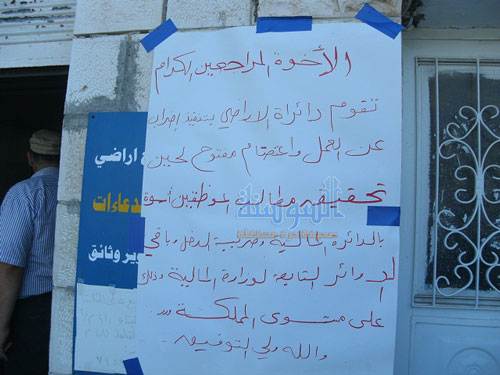 الأخوة المراجعين الكرام
تقوم دائرة الاراضي بتنفيذ إضراب
عن العمل واعتصام مفتوح لحين
تحقيقه مطالب الموظفين أسوة
بالدائرة المالية وضريبة الدخل وباقي
الدوائر التابعة لوزارة المالية وذلك
على مستوى المملكة
والله ولي التوفيق
اراضي
وثائق